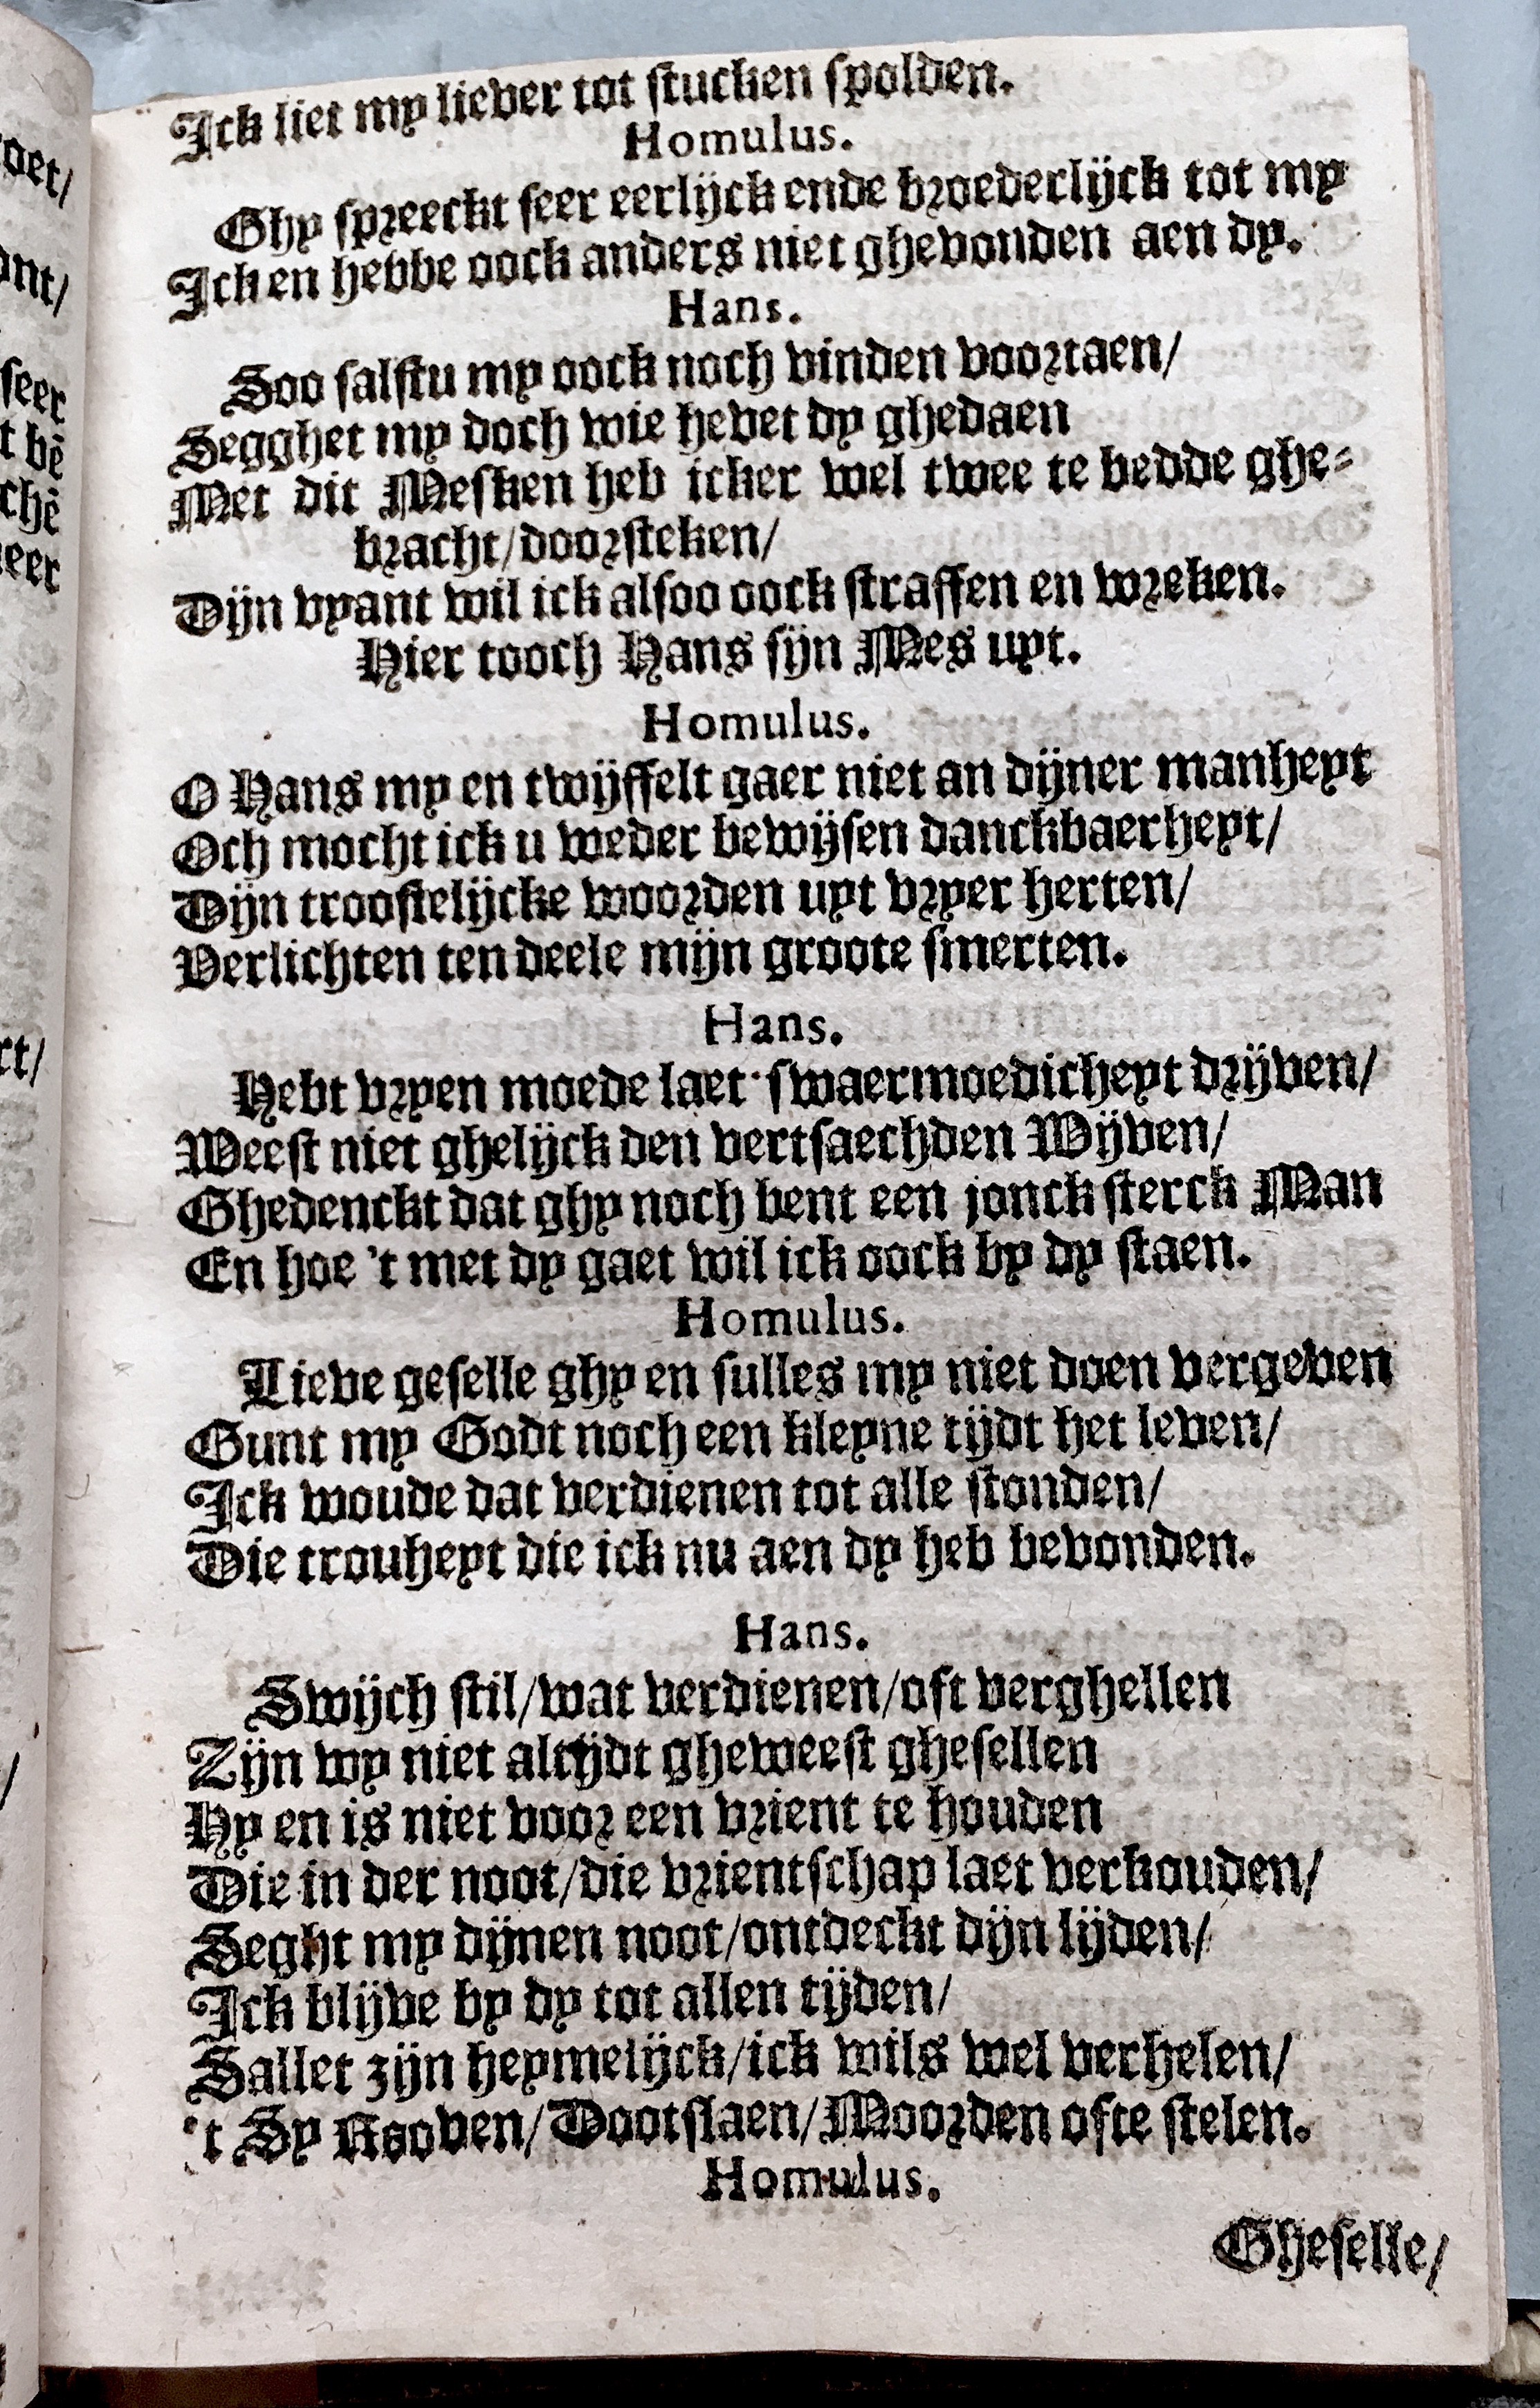 Ick liet my liever tot stucken spolden.
Homulus.
Ghy spreeckt seer eerlijck ende broederlijck tot my
Ick en hebbe oock anders niet ghevonden aen dy.
Hans.
Soo salstu my oock noch vinden voortaen/
Segghet my doch wie hevet dy ghedaen
Met dit Mesken heb icker wel twee te bedde ghe-
bracht/doorsteken/
Dijn vyant wil ick alsoo oock straffen en wreken.
Hier tooch Hans sijn Mes uyt.
Homulus.
O Hans my en twijffelt gaer niet an dijner manheyt
Och mocht ick u weder bewijsen danckbaerheyt/
Dijn troostelijcke woorden uyt vryer herten/
Verlichten ten deele mijn groote smerten.
Hans.
Hebt vryen moede laet swaermoedicheyt drijven/
Weest niet ghelijck den vertsaechden Wijven/
Ghedenckt dat ghy noch bent een jonck sterck Man
En hoe 't met dy gaet wil ick oock by dy staen.
Homulus.
Lieve geselle ghy en sulles my niet doen vergeven
Gunt my Godt noch een kleyne tijdt het leven/
Ick woude dat verdienen tot alle stonden/
Die trouheyt die ick nu aen dy heb bevonden.
Hans.
Swijch stil/wat verdienen/oft verghellen
Zijn wy niet altijdt gheweest ghesellen
Hy en is niet voor een vrient te houden
Die in der noot/die vrientschap laet verkouden/
Seght my dijnen noot/ontdeckt dijn lijden/
Ick blijve by dy tot allen tijden/
Sallet zijn heymelijck/ick wils wel verhelen/
't Sy Rooven/Dootslaen/Moorden ofte stelen.
Homulus.
Gheselle/
oet/
ont/
seer
t bē
chē
eer
rt/